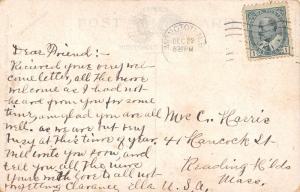 POST
DEC 22
8 30 PM
Dear Friend:-
Recieved your very wel-
come letter, all the more
welcome as I had not
heard from you for some
time, am glad you are all
well. as we are but very
busy at this time of year.
Will write you soon, and
tell you all the news
Yours with love to all not
forgetting Clarance Ella
Mr C. Harris
41 Hancock St
Reading H'lds
Mass.
U.S.A.